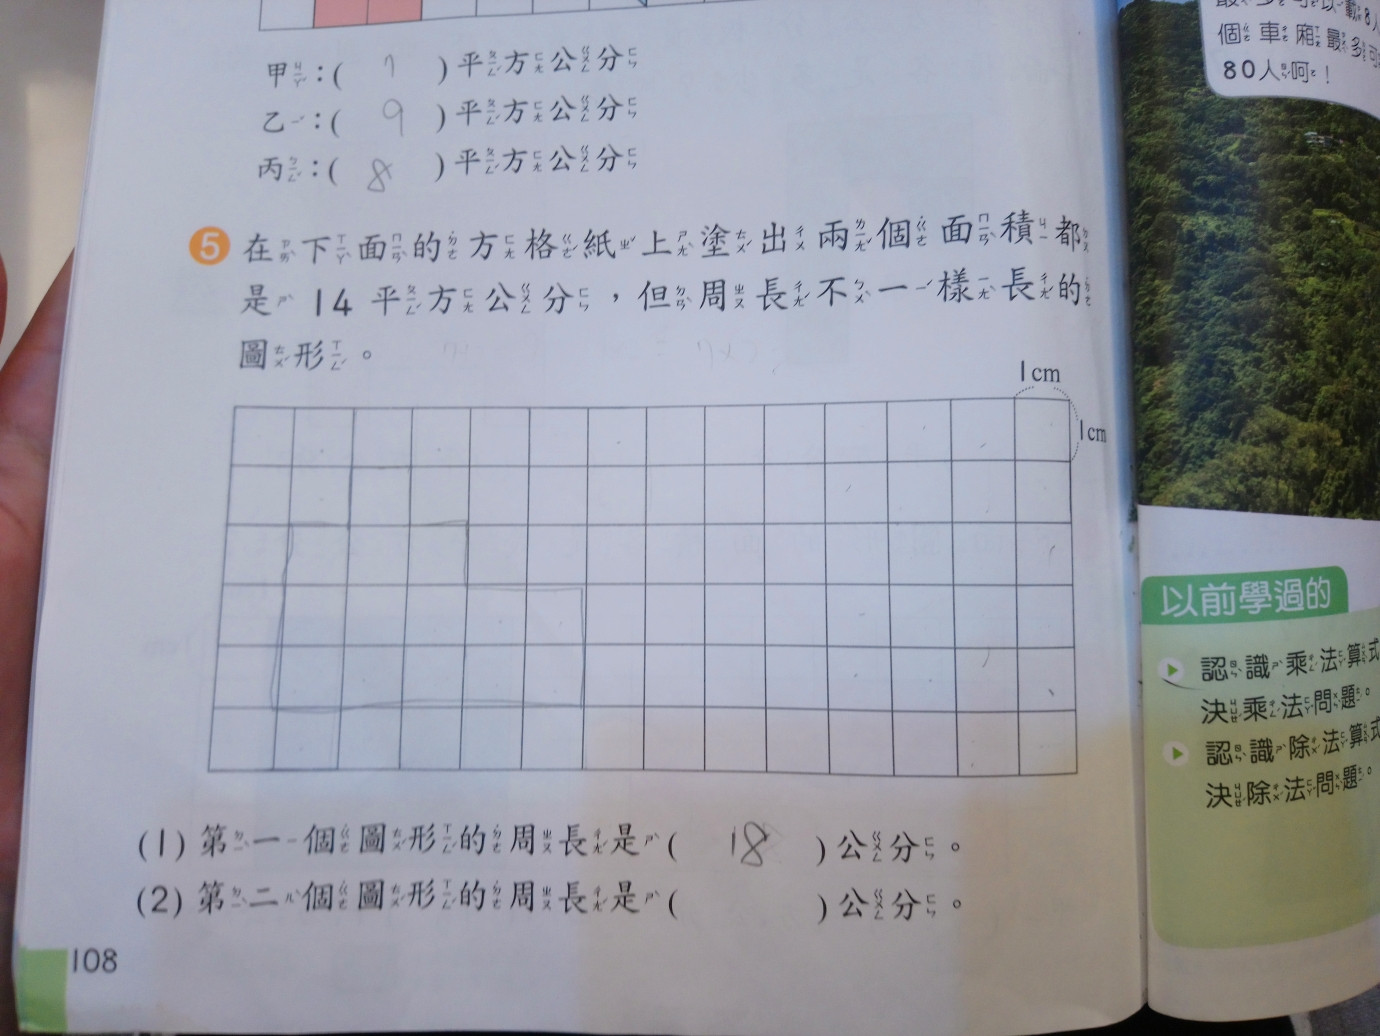 甲：( 7 )平方公分
乙：( 9 )平方公分
丙：( 8 )平方公分
5 在下面的方格紙上塗出兩個面積都
是 14 平方公分，但周長不一樣長的
圖形。
1cm
1cm
(1) 第一個圖形的周長是( 18 )公分。
(2) 第二個圖形的周長是( )公分。
108
載8人
個車廂最多可
80人呵！
以前學過的
認識乘法算式
決乘法問題。
認識除法算式
決除法問題。